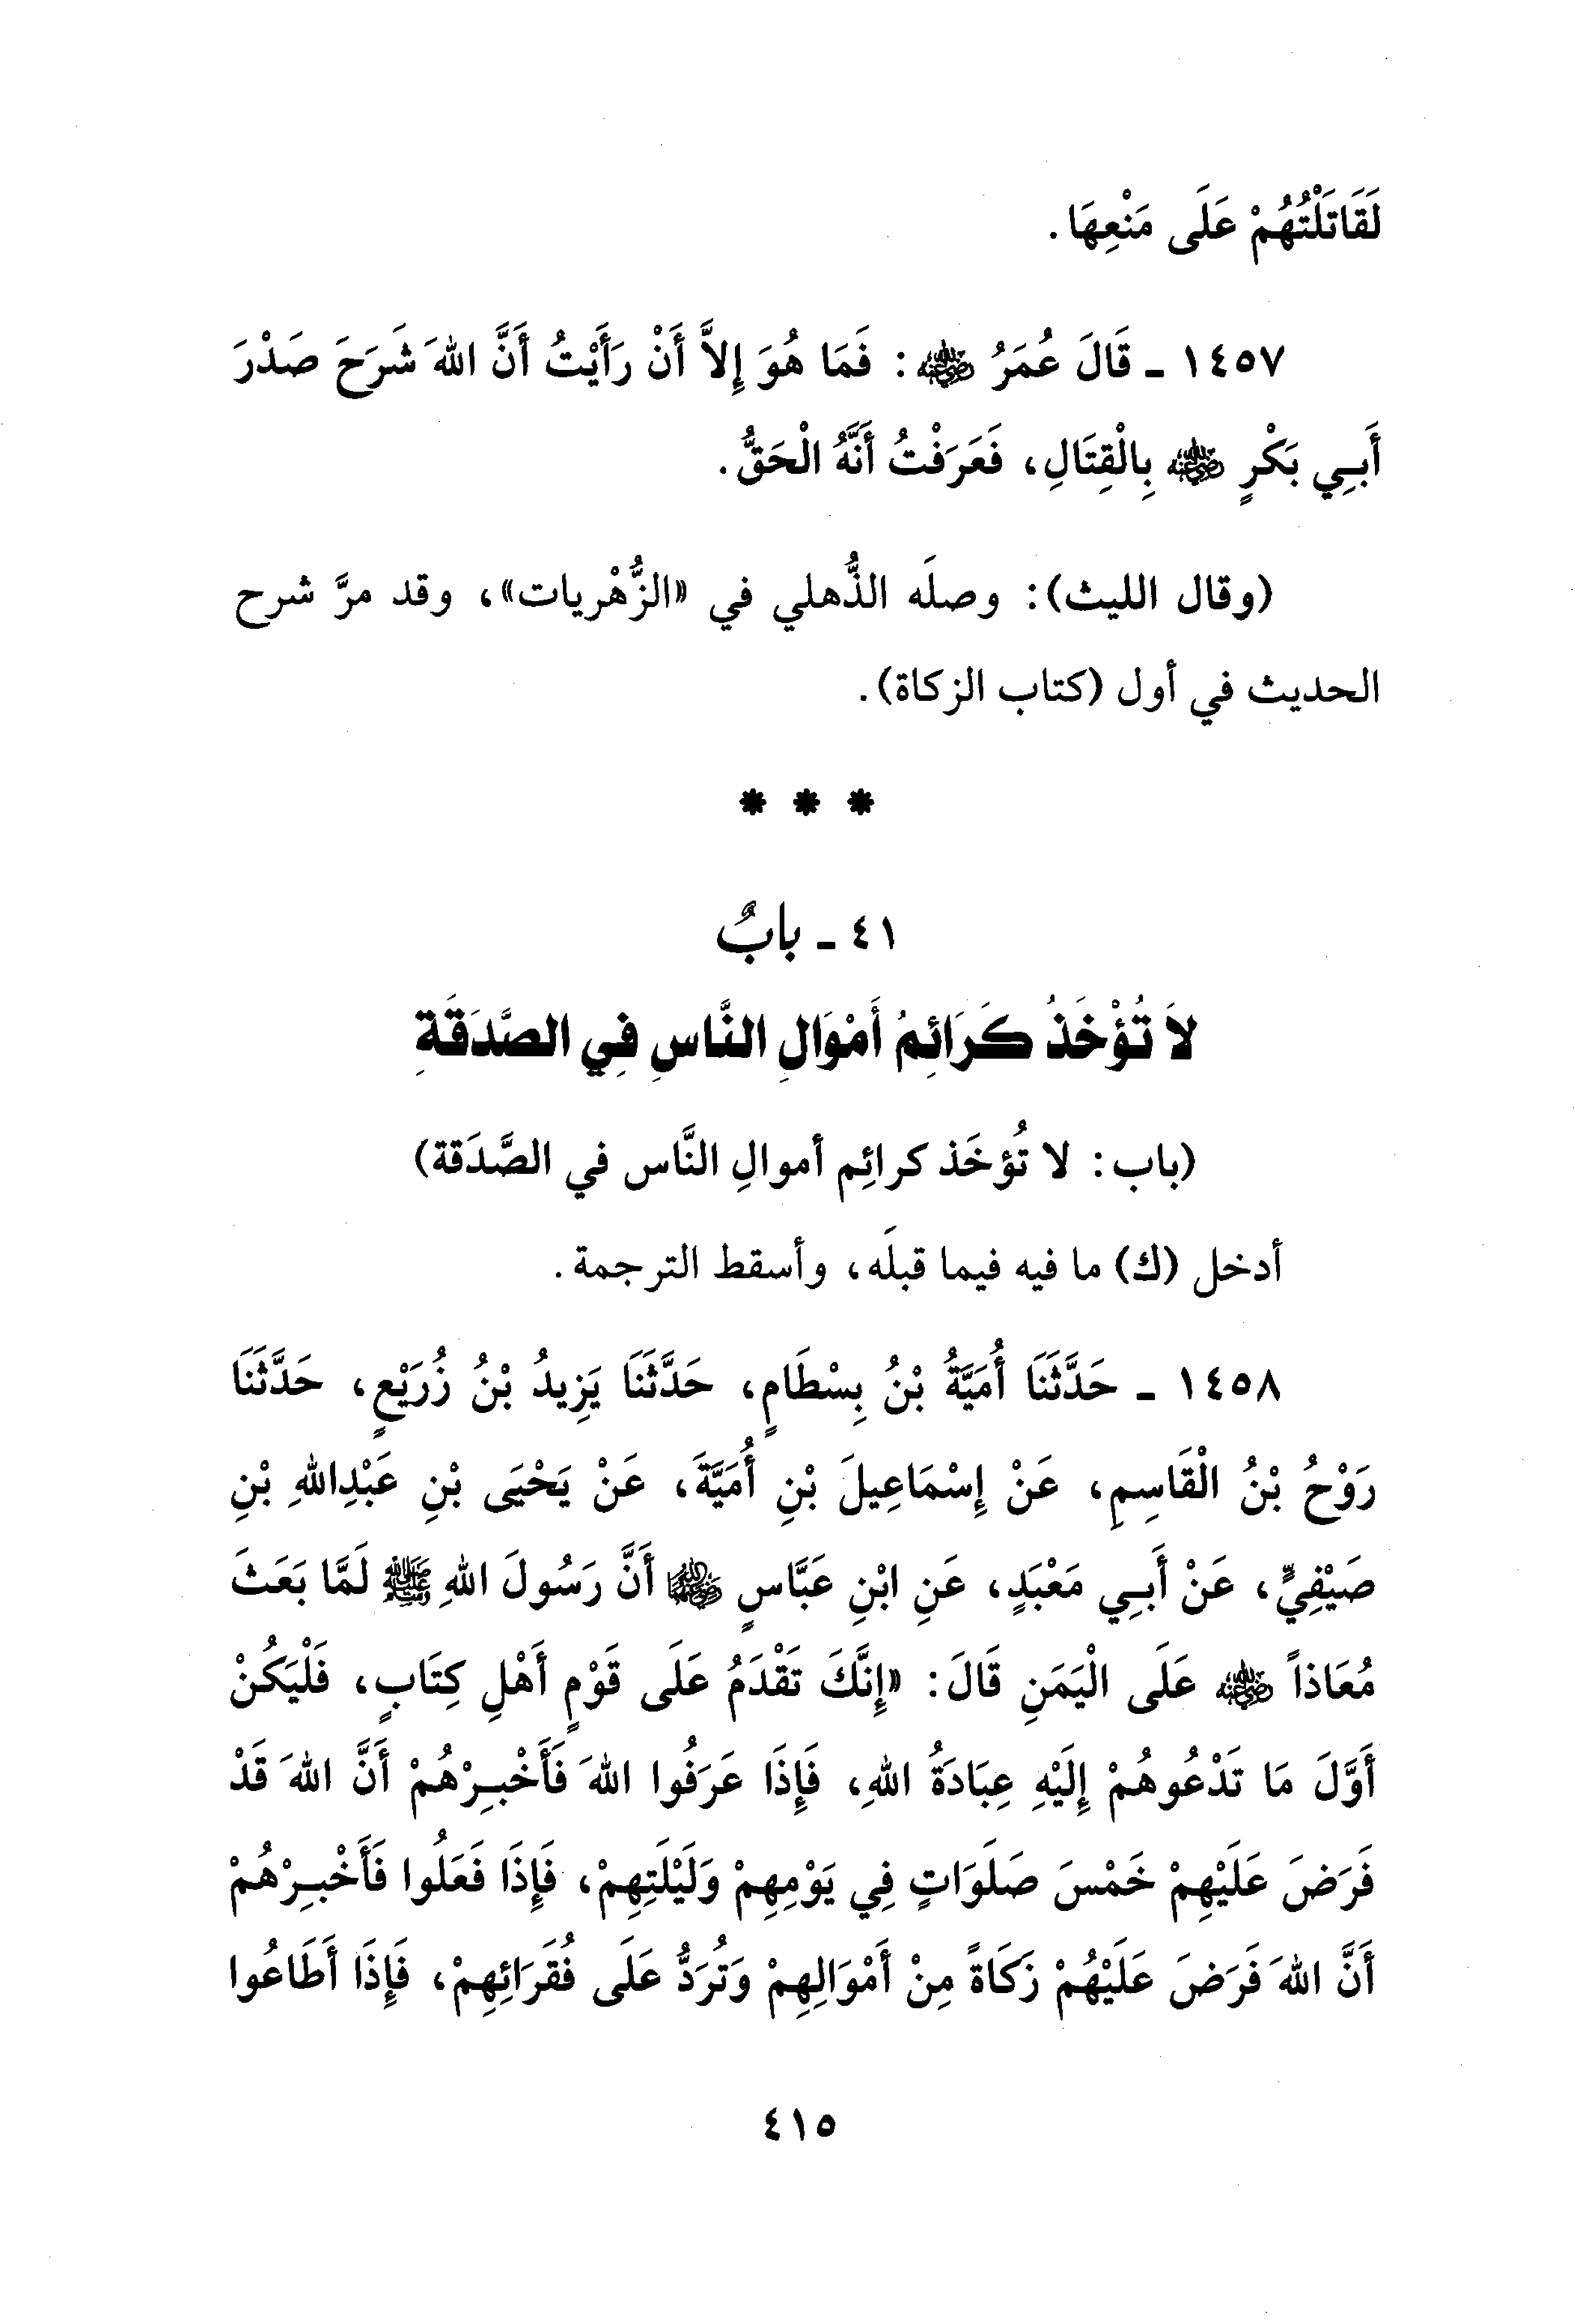 لَقَاتَلْتُهُمْ عَلَى مَنْعِهَا.
١٤٥٧ ـ قَالَ عُمَرُ ﵁: فَمَا هُوَ إِلاَّ أَنْ رَأَيْتُ أَنَّ اللهَ شَرَحَ صَدْرَ
أَبِي بَكْرٍ ﵁ بِالْقِتَالِ، فَعَرَفْتُ أَنَّهُ الْحَقُّ.
(وقال الليث): وصلَه الذُّهلي في «الزُّهْريات»، وقد مرَّ شرح
الحديث في أول (كتاب الزكاة).
* * *
٤١ ـ بابٌ
لاَ تُؤْخَذُ كَرَائِمُ أَمْوَالِ النَّاسِ فِي الصَّدَقَةِ
(باب: لا تُؤخَذ كرائِم أموالِ النَّاس في الصَّدَقة)
أدخل (ك) ما فيه فيما قبلَه، وأسقط الترجمة.
١٤٥٨ ـ حَدَّثَنَا أُمَيَّةُ بْنُ بِسْطَامٍ، حَدَّثَنَا يَزِيدُ بْنُ زُرَيْعٍ، حَدَّثَنَا
رَوْحُ بْنُ الْقَاسِمِ، عَنْ إِسْمَاعِيلَ بْنِ أُمَيَّةَ، عَنْ يَحْيَى بْنِ عَبْدِاللهِ بْنِ
صَيْفِيٍّ، عَنْ أَبِي مَعْبَدٍ، عَنِ ابْنِ عَبَّاسٍ ﵄ أَنَّ رَسُولَ اللهِ ﷺ لَمَّا بَعَثَ
مُعَاذاً ﵁ عَلَى الْيَمَنِ قَالَ: «إِنَّكَ تَقْدَمُ عَلَى قَوْمٍ أَهْلِ كِتَابٍ، فَلْيَكُنْ
أَوَّلَ مَا تَدْعُوهُمْ إِلَيْهِ عِبَادَةُ اللهِ، فَإِذَا عَرَفُوا اللهَ فَأَخْبِرْهُمْ أَنَّ اللهَ قَدْ
فَرَضَ عَلَيْهِمْ خَمْسَ صَلَوَاتٍ فِي يَوْمِهِمْ وَلَيْلَتِهِمْ، فَإِذَا فَعَلُوا فَأَخْبِرْهُمْ
أَنَّ اللهَ فَرَضَ عَلَيْهُمْ زَكَاةً مِنْ أَمْوَالِهِمْ وَتُرَدُّ عَلَى فُقَرَائِهِمْ، فَإِذَا أَطَاعُوا
٤١٥